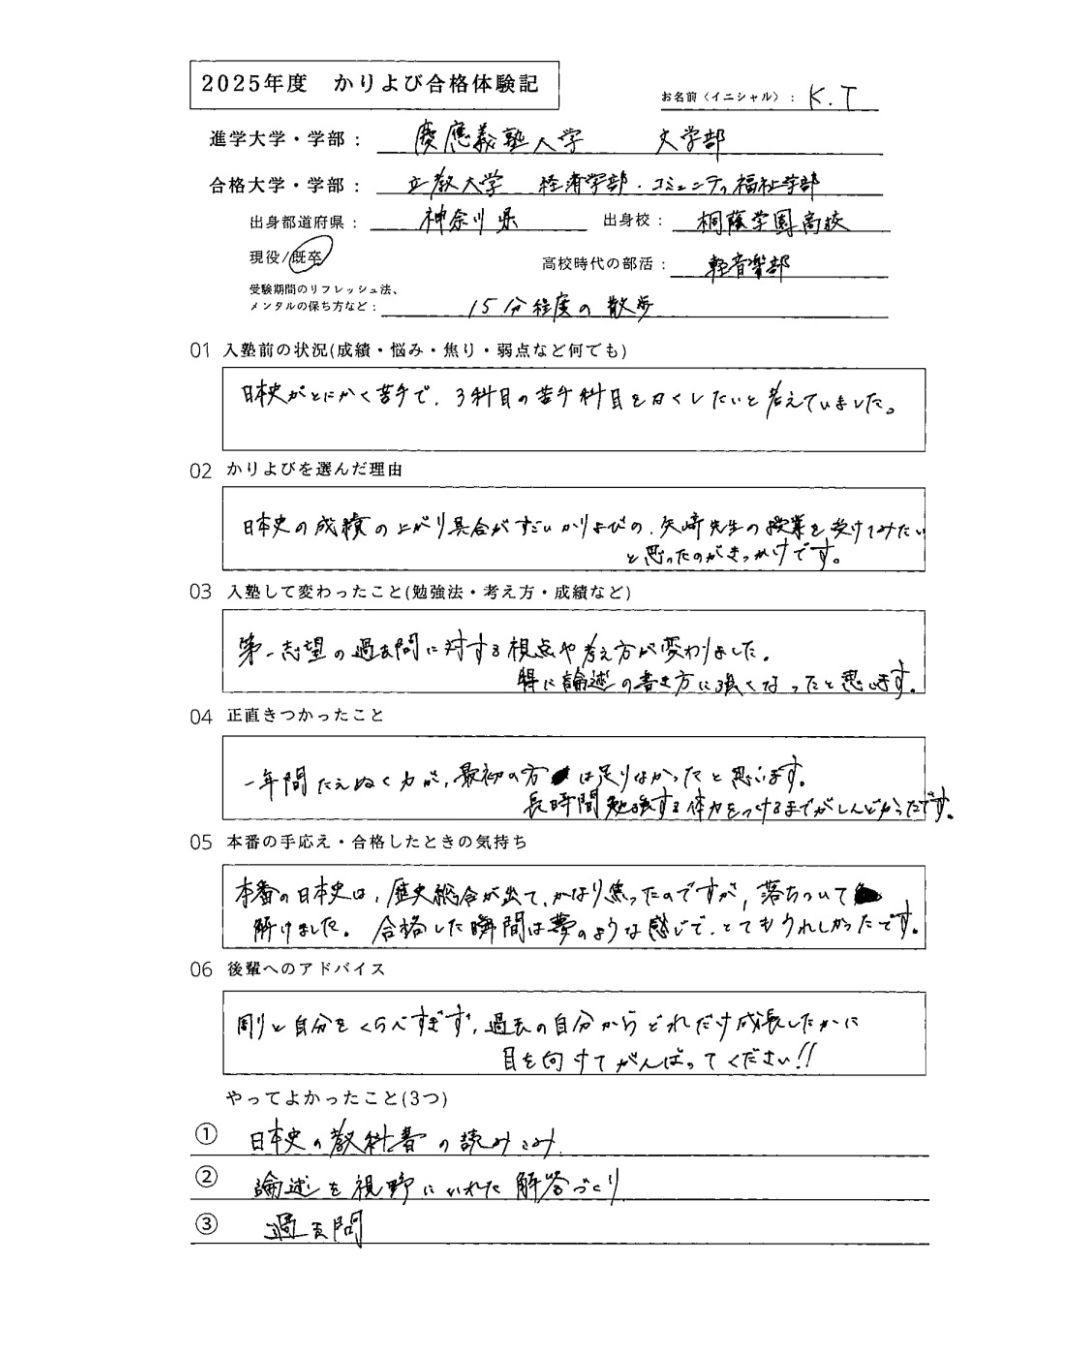 2025年度 かりよび合格体験記
お名前（イニシャル）： K.T
進学大学・学部： 慶應義塾大学 文学部
合格大学・学部： 立教大学 経済学部・コミュニティ福祉学部
出身都道府県： 神奈川県 出身校： 桐蔭学園高校
現役/既卒 高校時代の部活： 軽音楽部
受験期間のリフレッシュ法、
メンタルの保ち方など： 15分程度の散歩
01 入塾前の状況(成績・悩み・焦り・弱点など何でも)
日本史がとにかく苦手で、3科目の苦手科目を無くしたいと考えていました。
02 かりよびを選んだ理由
日本史の成績の上がり具合がすごいかりよびの、矢崎先生の授業を受けてみたい
と思ったのがきっかけです。
03 入塾して変わったこと(勉強法・考え方・成績など)
第一志望の過去問に対する視点や考え方が変わりました。
特に論述の書き方に強くなったと思います。
04 正直きつかったこと
一年間たえぬく力が、最初の方は足りなかったと思います。
長時間勉強する体力をつけるまでがしんどかったです。
05 本番の手応え・合格したときの気持ち
本番の日本史は、歴史総合が出て、かなり焦ったのですが、落ちついて
解けました。合格した瞬間は夢のような感じで、とてもうれしかったです。
06 後輩へのアドバイス
周りと自分をくらべすぎず、過去の自分からどれだけ成長したかに
目を向けてがんばってください!!
やってよかったこと(3つ)
① 日本史の教科書の読みこみ
② 論述を視野にいれた解答づくり
③ 過去問